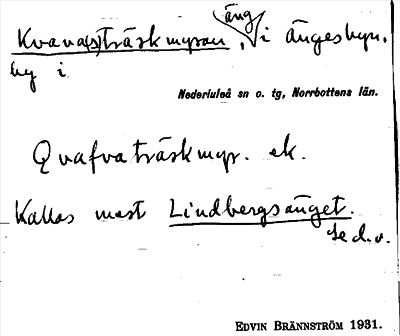 Kvava(s)träskmyran, äng i Ängesbyn.
by i
Nederluleå sn o. tg, Norrbottens län.
Qvafvaträskmyr. ek.
Kallas mest Lindbergsänget.
Se d.o.
EDVIN BRÄNNSTRÖM 1931.